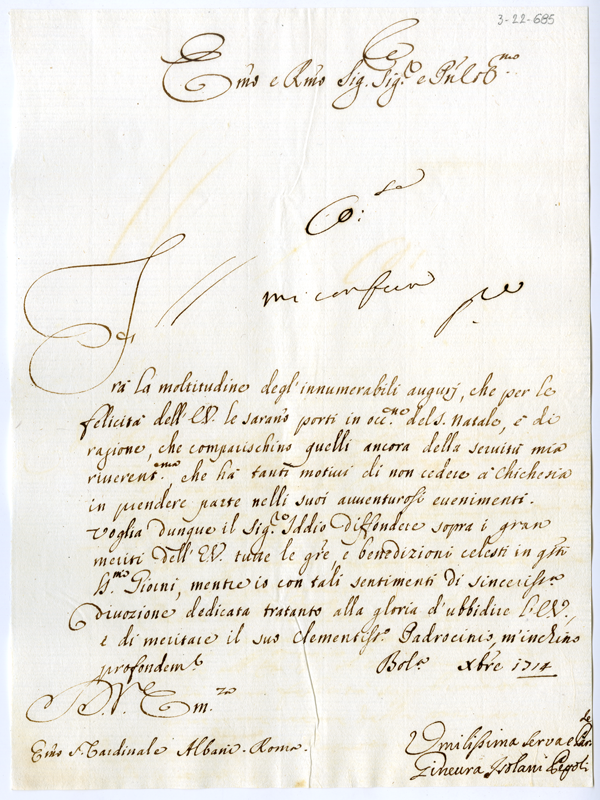 3-22-685
Em̃o e Rm̃o Sig. Sig.r e Pñ
Frà la moltitudine degl'innumerabili augurj, che per le
felicità dell'E.V. le sarano porti in occ.ne del S. Natale, è di
ragione, che comparischino quelli ancora della servitù mia
riverent.ma, che hà tanti motivi di non cedere à Chichesia
in prendere parte nelli suoi avventurosi evenimenti.
Voglia dunque il Sig.re Iddio diffondere sopra i gran
meriti dell'E.V. tutte le grẽ, e benedizioni celesti in qsti
S.mi Giorni, mentre io con tali sentimenti di sinceriss.a
divozione dedicata trattanto alla gloria d'ubbidire l'E.V.,
e di meritare il suo Clementiss.o Padrocinio, m'inchino
profondem.e
Bol.a Xbre 1714
D. V. Em.za
Em̃o S. Cardinale Albani. Roma.
Umilissima serva e
Ginevra Isolani Pepoli